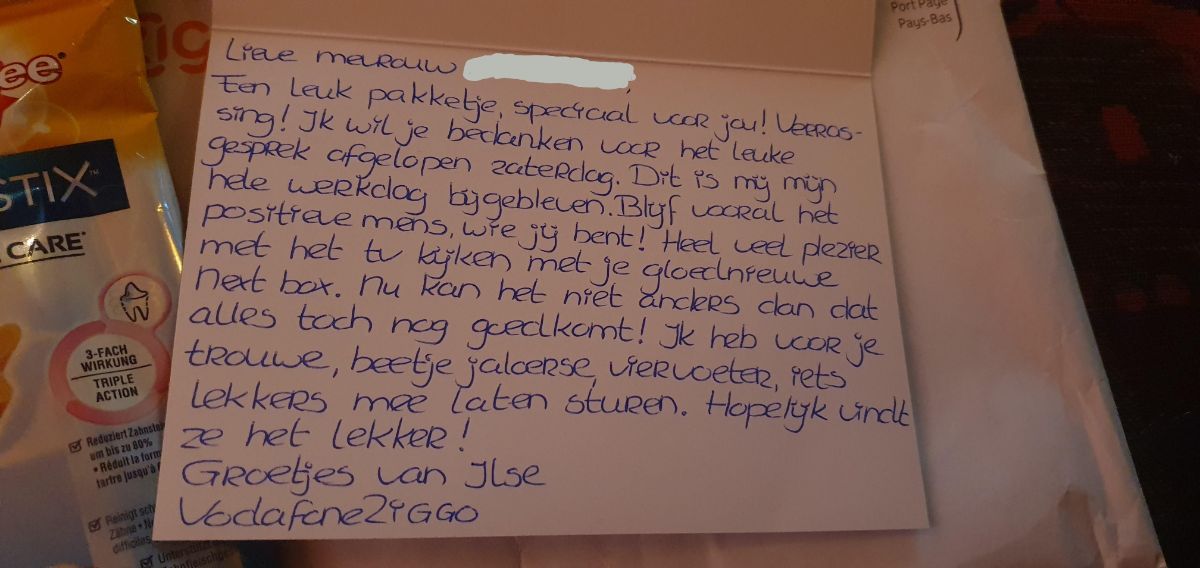 Port Payé
Pays-Bas
ig
ee
STIX™
CARE®
3-FACH
WIRKUNG
TRIPLE
ACTION
Reduziert Zahnste
um bis zu 80%
• Réduit la form
tartre jusqu'à
Reinigt sch
Zähne • N
difficiles
Unterstü
Lieve mevrouw
Een leuk pakketje, speciaal voor jou! Verras-
sing! Ik wil je bedanken voor het leuke
gesprek afgelopen zaterdag. Dit is mij mijn
hele werkdag bijgebleven. Blijf vooral het
positieve mens, wie jij bent! Heel veel plezier
met het tv kijken met je gloednieuwe
Next box. Nu kan het niet anders dan dat
alles toch nog goedkomt! Ik heb voor je
trouwe, beetje jaloerse, viervoeter, iets
lekkers mee laten sturen. Hopelijk vindt
ze het lekker!
Groetjes van Ilse
VodafoneZiggo